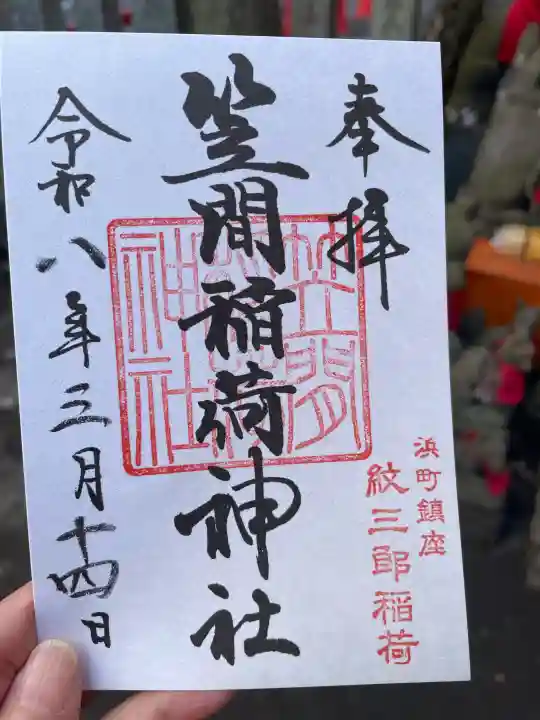 奉拝
浜町鎮座
紋三郎稲荷
笠間稲荷神社
笠間稲荷神社
令和八年三月十四日